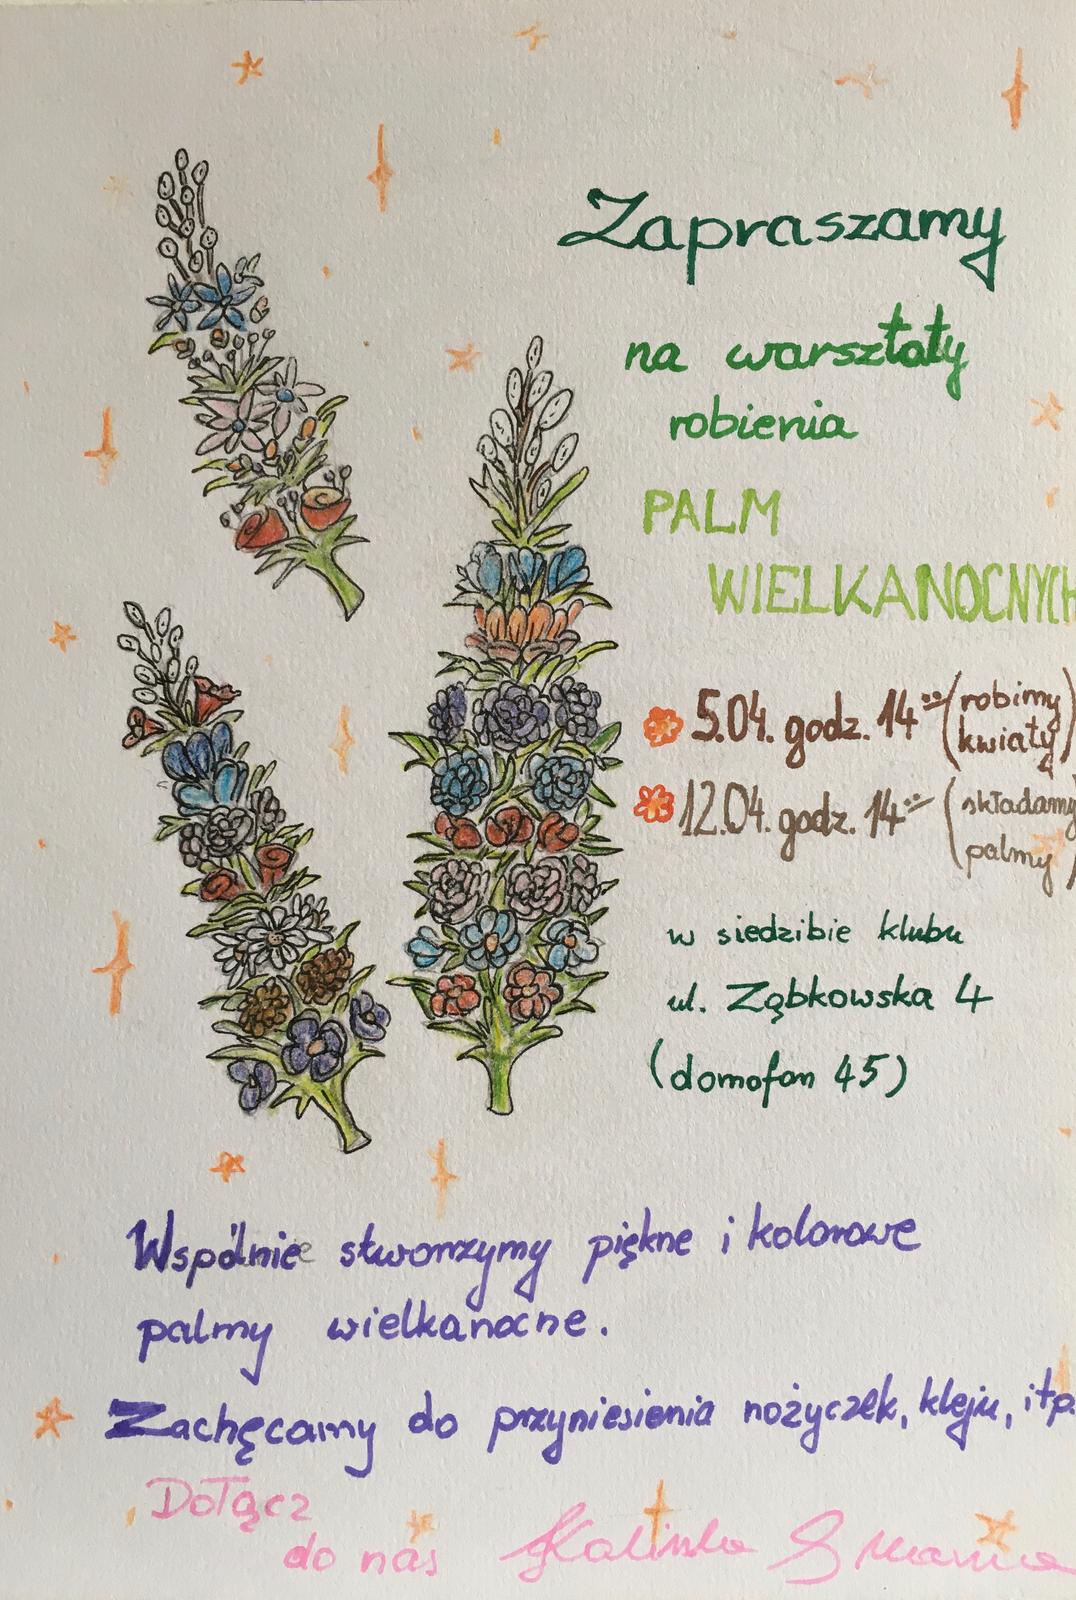 Zapraszamy
na warsztaty
robienia
PALM
WIELKANOCNYCH
5.04. godz. 14:00 (robimy
kwiaty)
12.04. godz. 14:00 (składamy
palmy)
w siedzibie klubu
ul. Ząbkowska 4
(domofon 45)
Wspólnie stworzymy piękne i kolorowe
palmy wielkanocne.
Zachęcamy do przyniesienia nożyczek, kleju, itp.
Dołącz
do nas